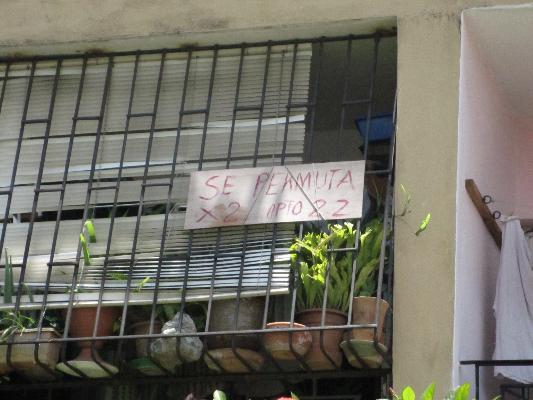 SE PERMUTA
X 2 APTO 22